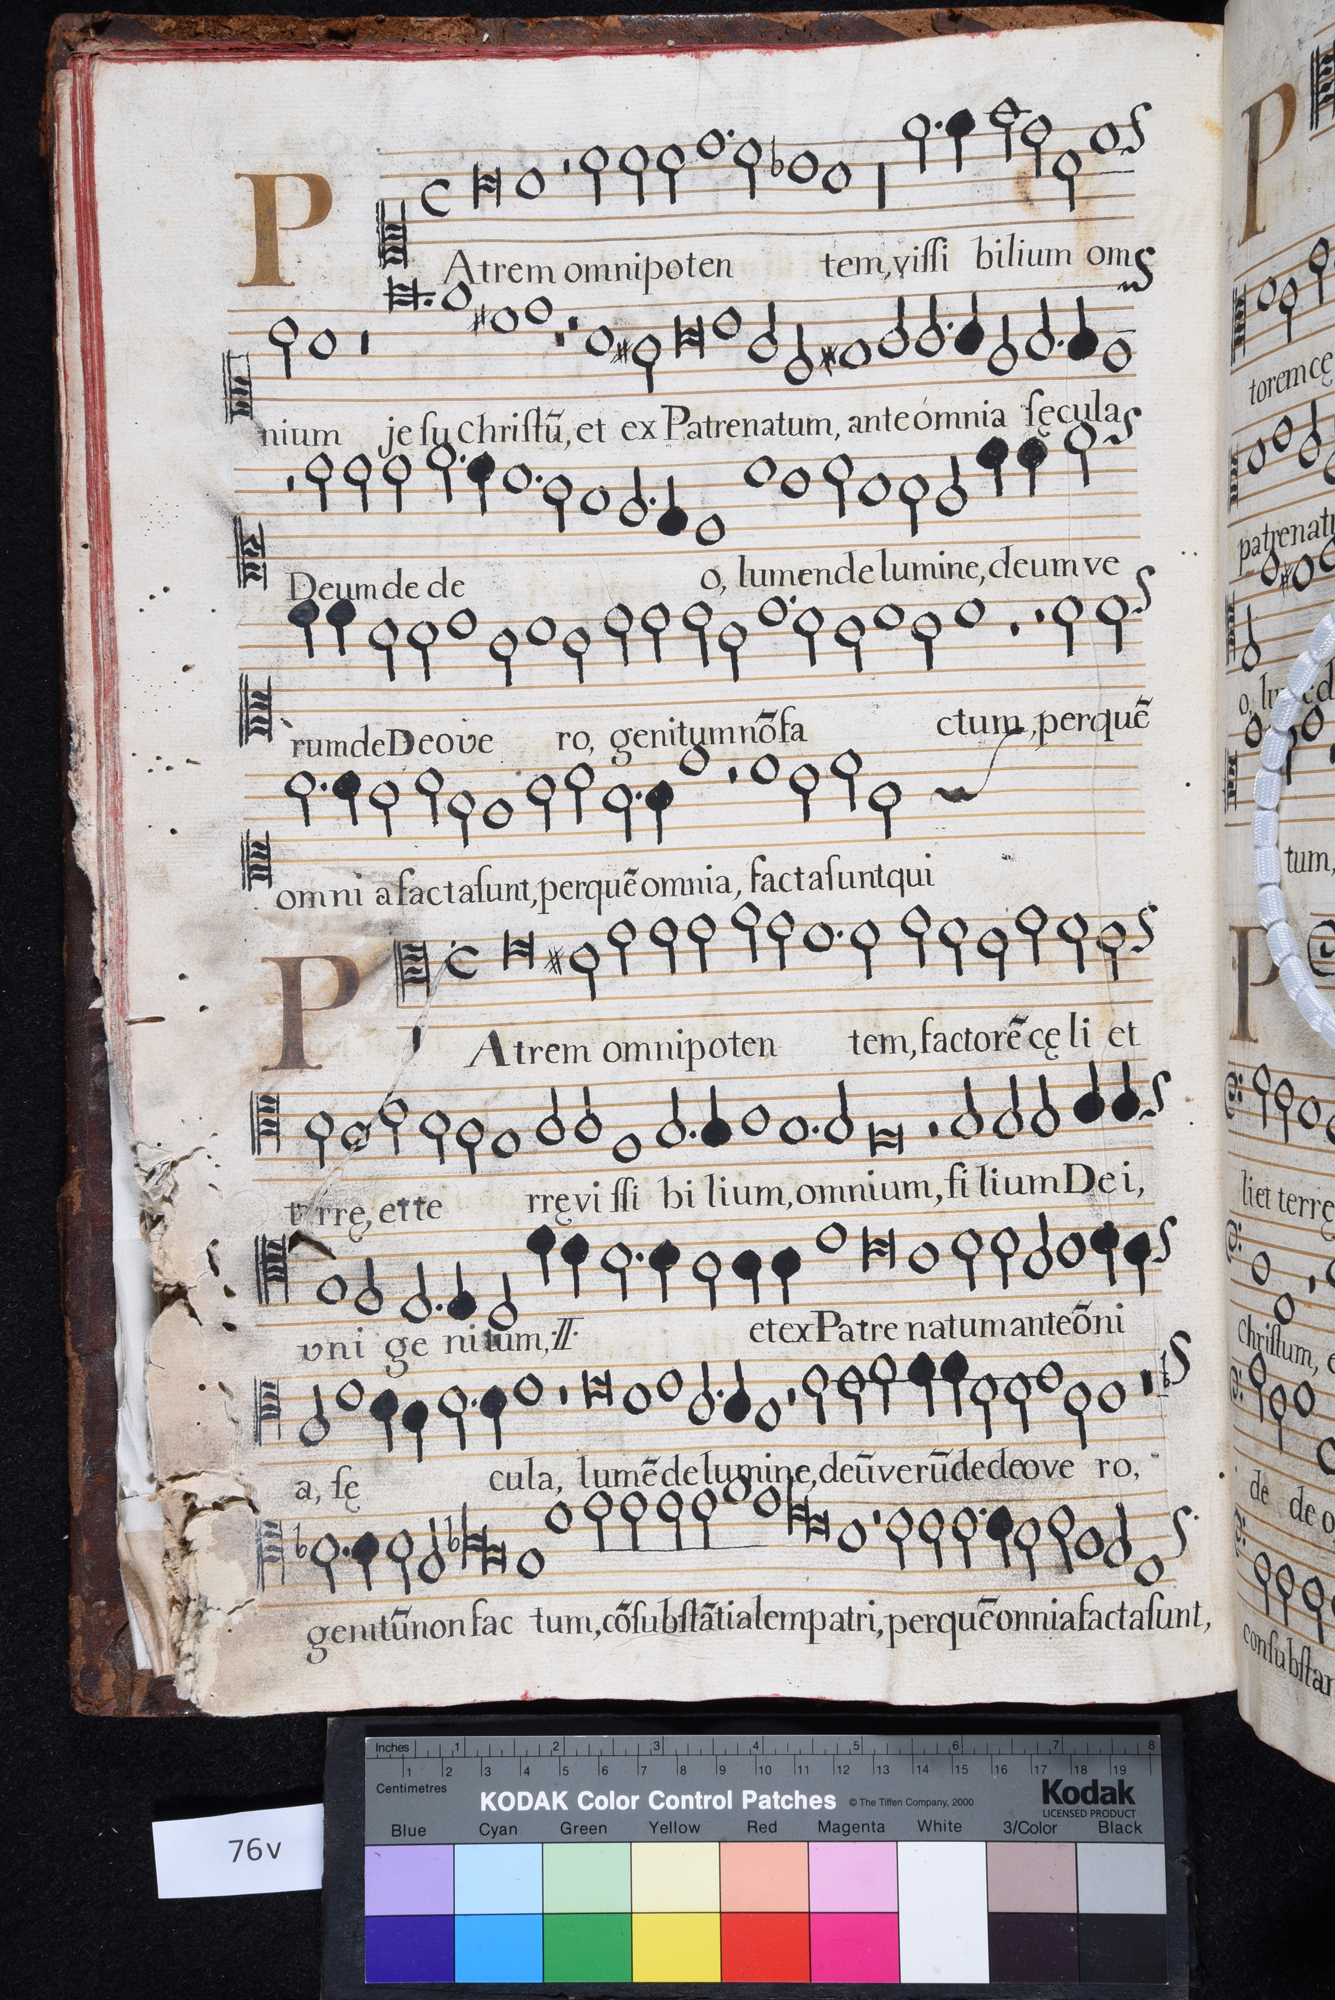 P
Atrem omnipoten tem, vissi bilium om
nium jesu Christũ, et ex Patre natum, ante omnia sęcula
Deum de de o, lumen de lumine, deum ve
rum de Deo ve ro, genitum nõ fa ctum, per quẽ
omni a facta sunt, per quẽ omnia, facta sunt qui
P
Atrem omnipoten tem, factorẽ cę li et
rrę, et te rrę vi ssi bi lium, omnium, fi lium De i,
vni ge nitum, :II: et ex Patre natum ante õni
a, sę cula, lumẽ de lumine, deũ verũ de deo ve ro,
genitũ non fac tum, cõsubstãtialem patri, per quẽ onnia facta sunt,
P
torem cę
patre natu
o, lu
tum,
P
li et terrę
Christum, e
de de o
consubstan
Inches 1 2 3 4 5 6 7 8
1 2 3 4 5 6 7 8 9 10 11 12 13 14 15 16 17 18 19
Centimetres
KODAK Color Control Patches © The Tiffen Company, 2000 Kodak
LICENSED PRODUCT
Blue Cyan Green Yellow Red Magenta White 3/Color Black
76v